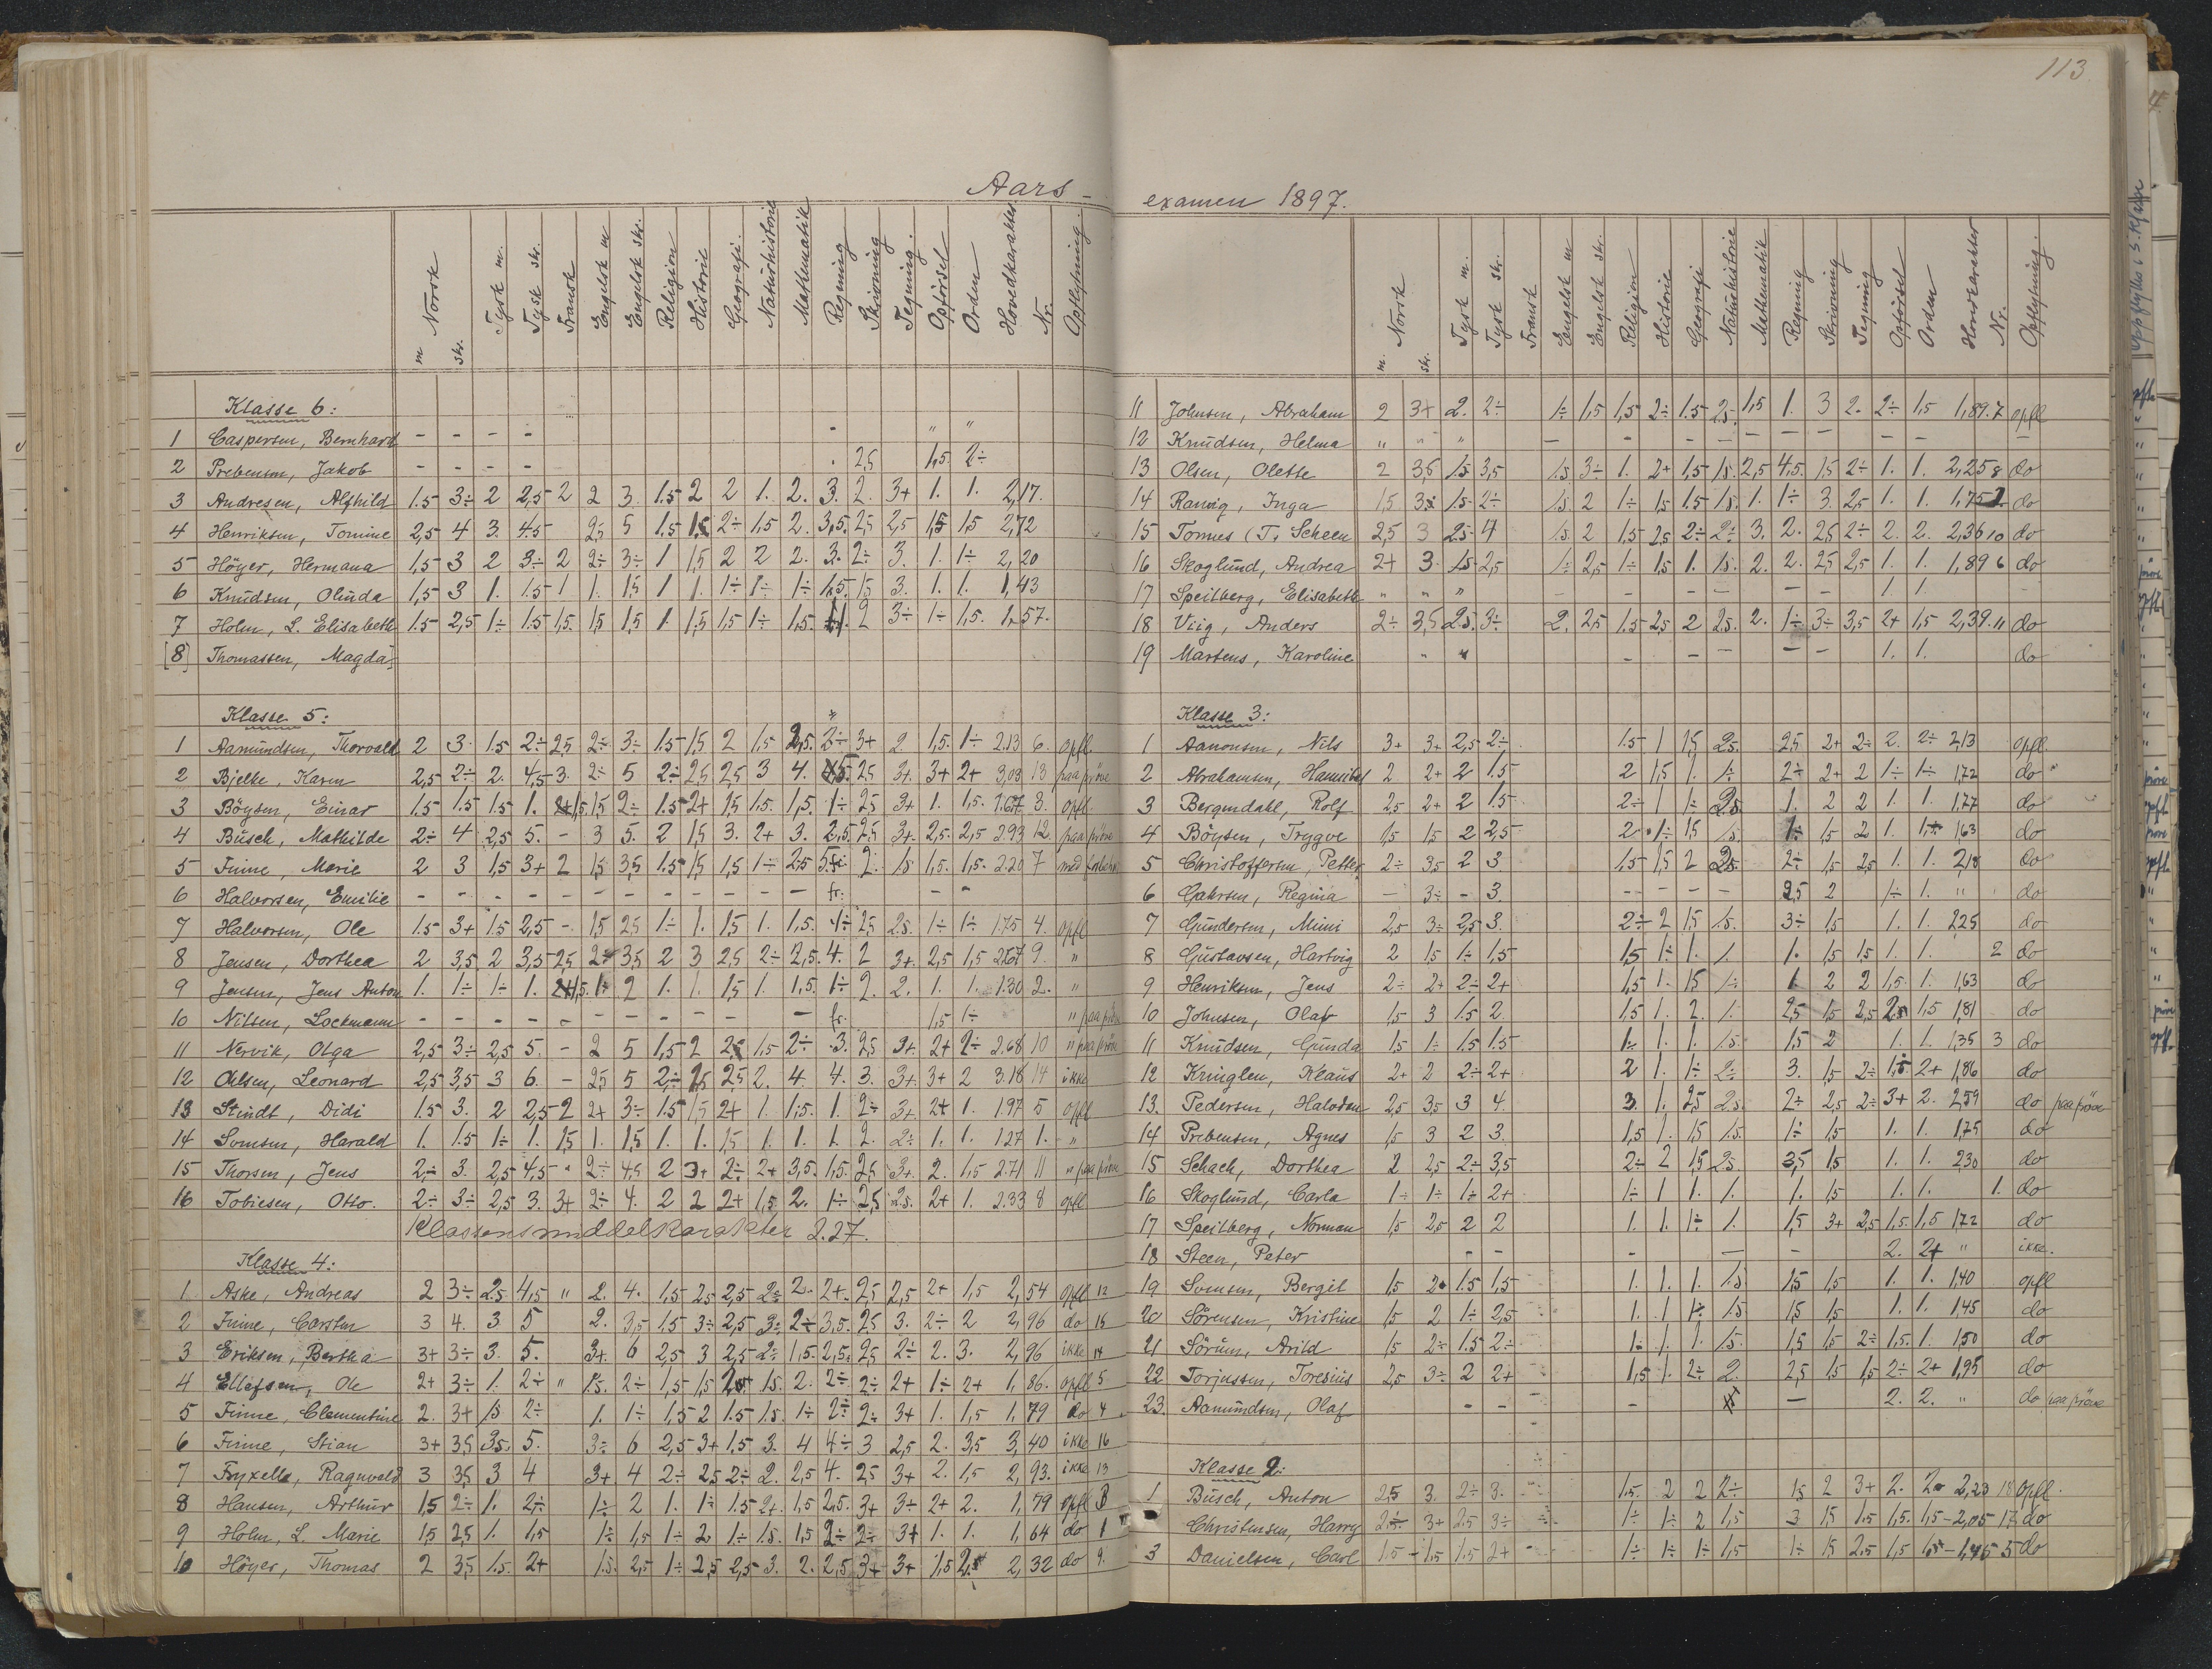 113
Aars-
Norsk m skr. Tysk m. Tysk skr. Fransk Engelsk m Engelsk skr. Religion Historie Geografi. Naturhistorie Mathematik Regning Skrivning Tegning. Opførsel Orden Hovedkarakter Nr. Opflytning.
Klasse 6:
1 Caspersen, Bernhard - - - - - " "
2 Prebensen, Jakob - - - - 2,5 1,5 2÷
3 Andresen, Alfhild 1.5 3÷ 2 2,5 2 2 3. 1.5 2 2 1. 2. 3. 2. 3+ 1. 1. 2,17.
4 Henriksen, Tomine 2,5 4 3. 4.5 2,5 5 1.5 2÷ 1,5 2. 3,5. 2,5 2,5 1,5 1,5 2,72
5 Höyer, Hermana 1,5 3 2 3÷ 2 2÷ 3÷ 1 1,5 2 2 2. 3. 2÷ 3. 1. 1÷ 2,20
6 Knudsen, Olinda 1,5 3 1. 1.5 1 1. 1,5 1 1. 1÷ 1÷ 1÷ 1,5. 1,5 3. 1. 1. 1,43
7 Holm, L. Elisabeth 1.5 2,5 1÷ 1.5 1,5. 1,5 1,5 1. 1,5 1,5 1÷ 1,5. 2 3÷ 1÷ 1,5. 1,57.
[8] Thomassen, Magda]
Klasse 5:
1 Aamundsen, Thorvald 2 3. 1.5 2÷ 2,5 2÷ 3÷ 1.5 1,5 2 1,5 2,5. 2÷ 3+ 2. 1,5. 1÷ 2.13 6. opfl.
2 Bjelke, Karen 2,5 2÷ 2. 4,5 3. 2÷ 5 2÷ 2,5 2,5 3 4. 2,5 3+. 3+ 2+ 3,03 13 paa prøve
3 Böysen, Einar 1.5 1.5 1.5 1. 1,5 1,5 2÷ 1.5 2+ 1,5 1.5. 1,5. 1÷ 2,5 3+ 1. 1,5. 1.67 3. opfl.
4 Busch, Mathilde 2÷ 4 2,5 5. - 3 5. 2 1,5 3. 2+ 3. 2,5. 2,5 3+. 2,5. 2,5 2.93 12 paa prøve
5 Finne, Marie 2 3 1,5 3+ 2 1,5 3,5 1.5 1,5 1,5 1÷ 2,5 2. 1.5 1,5. 1,5. 2.20 7 med
6 Halvorsen, Emilie - - - - - - - - - - - - fr. - -
7 Halvorsen, Ole 1.5 3+ 1.5 2,5 - 1,5 2,5 1÷ 1. 1,5 1. 1,5. 1÷ 2,5 2.5. 1÷ 1÷ 1.75 4. opfl
8 Jensen, Dorthea 2 3,5 2 3,5 2,5 2÷ 3,5 2 3 2,5 2÷ 2,5. 4. 2 3+. 2,5 1,5 2.67 9. "
9 Jensen, Jens Anton 1. 1÷ 1÷ 1. 1,5. 1÷ 2 1. 1. 1,5 1. 1,5. 1÷ 2. 2. 1. 1. 1.30 2. "
10 Nilsen, Lockmann - - - - - - - - - - - - fr. 1,5 1÷ " paa prøve
11 Nervik, Olga 2,5 3÷ 2,5 5. - 2 5 1,5 2 2,5 1,5 2÷ 3. 2,5 3+. 2+ 2÷ 2.68 10 " paa prøve
12 Olsen, Leonard 2,5 3,5 3 6. - 2,5 5 2÷ 2,5 2,5 2. 4. 4. 3. 3+. 3+ 2 3.18 14 ikke
13 Stindt, Didi 1.5 3. 2 2,5 2 2+ 3÷ 1.5 1,5 2+ 1. 1,5. 1. 2÷ 3+. 2+ 1. 1.97 5 opfl
14 Somsen, Harald 1. 1.5 1÷ 1. 1,5 1. 1,5 1. 1. 1,5 1. 1. 1. 2. 2÷ 1. 1. 1.27 1. "
15 Thorsen, Jens 2÷ 3. 2,5 4,5 - 2÷ 4,5 2 3+ 2÷ 2+ 3,5. 1,5. 2,5 3+. 2. 1,5 2.71 11 " paa prøve
16 Tobiesen, Otto. 2÷ 3÷ 2,5 3. 3+ 2÷ 4. 2 2 2+ 1,5. 2. 1÷ 2,5 2.5. 2+ 1. 2.33 8 opfl
Klassens middelkarakter 2.27.
Klasse 4:
1. Aske, Andreas 2 3÷ 2.5 4,5 " 2. 4. 1.5 2,5 2,5 2÷ 2. 2+. 2,5 2,5 2+ 1,5 2,54 opfl 12
2 Finne, Carsten 3 4. 3 5 2. 3,5 1.5 3÷ 2,5 3÷ 2÷ 3,5. 2,5 3. 2÷ 2 2,96 do 15
3 Eriksen, Bertha 3+ 3÷ 3. 5. 3+. 6 2,5 3 2,5 2÷ 1,5. 2,5. 2,5 2÷ 2. 3. 2,96 ikke 14
4 Ellefsen, Ole 2+ 3÷ 1. 2÷ " 1.5. 2÷ 1,5 1,5 1.5. 2. 2÷ 2÷ 2+ 1÷ 2+ 1,86. opfl 5
5 Finne, Clementine 2. 3+ 1.5 2÷ 1. 1÷ 1,5 2 1.5 1.5. 1÷ 2÷ 2÷ 3+ 1. 1,5 1,79 do 4
6 Finne, Stian 3+ 3,5 3.5. 5. 3÷ 6 2,5 3+ 1.5 3. 4 4÷ 3 2,5 2. 3,5 3,40 ikke 16
7 Fryxell, Ragnvald 3 3,5 3 4 3+. 4 2÷ 2,5 2÷ 2. 2,5 4. 2,5 3+ 2. 1,5 2,93. ikke 13
8 Hansen, Arthur 1,5 2÷ 1. 2÷ 1÷ 2 1. 1÷ 1.5 2+. 1,5 2,5. 3+ 3÷ 2+ 2. 1,79 opfl 3
9 Holm, L. Marie 1,5 2,5 1. 1,5 1÷ 1,5 1÷ 2 1÷ 1.5. 1,5 2÷ 2÷ 3+ 1. 1. 1,64 do 1
10 Höyer, Thomas 2 3,5 1.5. 2+ 1.5. 2,5 1÷ 2,5 2,5 3. 2. 2,5 3+ 3+ 1,5 2,32 do 9.
examen 1897.
m. Norsk skr. Tysk m. Tysk skr. Fransk Engelsk m Engelsk skr. Religion Historie Geografi Naturhistorie Mathematik Regning Skrivning Tegning Opførsel Orden Hovedkarakter Nr. Opflytning.
11 Johnsen, Abraham 2 3+ 2. 2÷ 1÷ 1,5 1,5 2÷ 1.5 2,5. 1,5 1. 3 2. 2÷ 1,5 1,89. 7 opfl
12 Knudsen, Helma " " " - - - - - - - - - -
13 Olsen, Olette 2 3,5 1.5 3,5 1.5 3÷ 1. 2+ 1,5 1.5. 2,5 4,5. 1,5 2÷ 1. 1. 2,25 8 do
14 Ranvig, Inga 1,5 3÷ 1.5. 2÷ 1.5. 2 1÷ 1,5 1.5 1.5. 1. 1÷ 3. 2,5 1. 1. 1,75 2 do
15 Tomes (T. Scheen 2,5 3 2.5. 4 1.5. 2 1,5 2,5 2÷ 2÷ 3. 2. 2,5 2÷ 2. 2. 2,36 10 do
16 Skoglund, Andrea 2+ 3. 1.5. 2,5 1÷ 2,5 1÷ 1.5 1. 1.5. 2. 2. 2,5 2,5 1. 1. 1,89 6 do
17 Speilberg, Elisabeth " " " - - - - - - - 1. 1. -
18 Viig, Anders 2÷ 3,5 2.5. 3÷ 2. 2,5 1.5 2,5 2 2.5. 2. 1÷ 3÷ 3,5 2+ 1,5 2,39. 11 do
19 Martens, Karoline " " - - - - - 1. 1. do
Klasse 3:
1 Aanonsen, Nils 3+ 3+ 2,5 2÷ 1.5 1 1,5 2.5. 2,5 2+ 2÷ 2. 2÷ 2,13 opfl.
2 Abrahamsen, Hannibal 2 2+ 2 1.5 2 1,5 1. 1÷ 2÷ 2+ 2 1÷ 1÷ 1,72 do "
3 Bergendahl, Rolf 2,5 2+ 2 1.5 2÷ 1 1÷ 2.5. 1. 2 2 1. 1. 1,77 do
4 Böysen, Trygve 1,5 1,5 2 2,5 2 1÷ 1,5 1.5. 1÷ 1,5 2 1. 1,63 do
5 Christoffersen, Petter 2÷ 3,5 2 3. 1.5 1,5 2 2.5. 2÷ 1,5 2,5 1. 1. 2,18 do
6 Gahrsen, Regina - 3÷ - 3. - - - - 2,5 2 1÷ 1. " do
7 Gundersen, Mimi 2,5 3÷ 2,5 3. 2÷ 2 1,5 1.5. 3÷ 1,5 1. 1. 2,25 do
8 Gustavsen, Hartvig 2 1,5 1÷ 1,5 1,5 1÷ 1. 1. 1. 1,5 1,5 1. 1. 2 do
9 Henriksen, Jens 2÷ 2+ 2÷ 2+ 1,5 1. 1,5 1÷ 1. 2 2 1,5. 1. 1,63 do
10 Johnsen, Olaf 1,5 3 1.5 2. 1,5 1. 2. 1. 2,5 1,5 2,5 2,5 1,5 1,81 do
11 Knudsen, Gunda 1,5 1÷ 1.5 1.5 1÷ 1. 1. 1.5. 1,5 2 1. 1. 1,35 3 do
12 Kringlen, Klaus 2+ 2 2÷ 2+ 2 1. 1÷ 2÷ 3. 1,5 2÷ 1,5 2+ 1,86 do
13. Pedersen, Halvdan 2,5 3,5 3 4. 3. 1. 2,5 2.5. 2÷ 2,5 2÷ 3+ 2. 2,59 do paa prøve
14 Prebensen, Agnes 1,5 3 2 3. 1,5 1. 1,5 1.5. 1÷ 1,5 1. 1. 1,75 do
15 Schach, Dorthea 2 2,5 2÷ 3,5 2÷ 2 1,5 2.5. 3,5 1,5 1. 1. 2,30 do
16 Skoglund, Carla 1÷ 1÷ 1÷ 2+ 1÷ 1 1. 1. 1. 1,5 1. 1. 1. do
17 Speilberg, Norman 1,5 2,5 2 2 1. 1. 1÷ 1. 1,5 3+ 2,5 1,5. 1,5 1,72 do
18 Steen, Peter - - - - - 2. 2+ " ikke.
19 Somsen, Bergit 1,5 2. 1.5 1,5 1. 1. 1. 1.5. 1,5 1,5 1. 1. 1,40 opfl
20 Sörensen, Kristine 1,5 2 1÷ 2,5 1. 1 1÷ 1.5 1,5 1,5 1. 1. 1,45 do
21 Sörum, Arild 1,5 2÷ 1.5 2÷ 1÷ 1. 1. 1.5. 1,5 1,5 2÷ 1,5. 1. 1,50 do
22 Torjussen, Toresius 2,5 3÷ 2 2+ 1,5 1. 2÷ 2. 2,5 1,5 1,5 2÷ 2+ 1,95 do
23. Aamundsen, Olaf - - - - 2. 2. " do paa prøve
Klasse 2:
1 Busch, Anton 2,5 3. 2÷ 3. 1.5. 2 2 2÷ 1,5 2 3+ 2. 2. 2,23 18 opfl.
Christensen, Harry 3+ 2,5 3÷ 1÷ 1÷ 2 1,5 3 1,5 1.5 1,5. 1,5 - 2,05 do
3 Danielsen, Carl 1.5 - 1.5 1.5 2+ 1÷ 1÷ 1÷ 1,5 1÷ 1,5 2.5 1,5 - 1,45 5 do